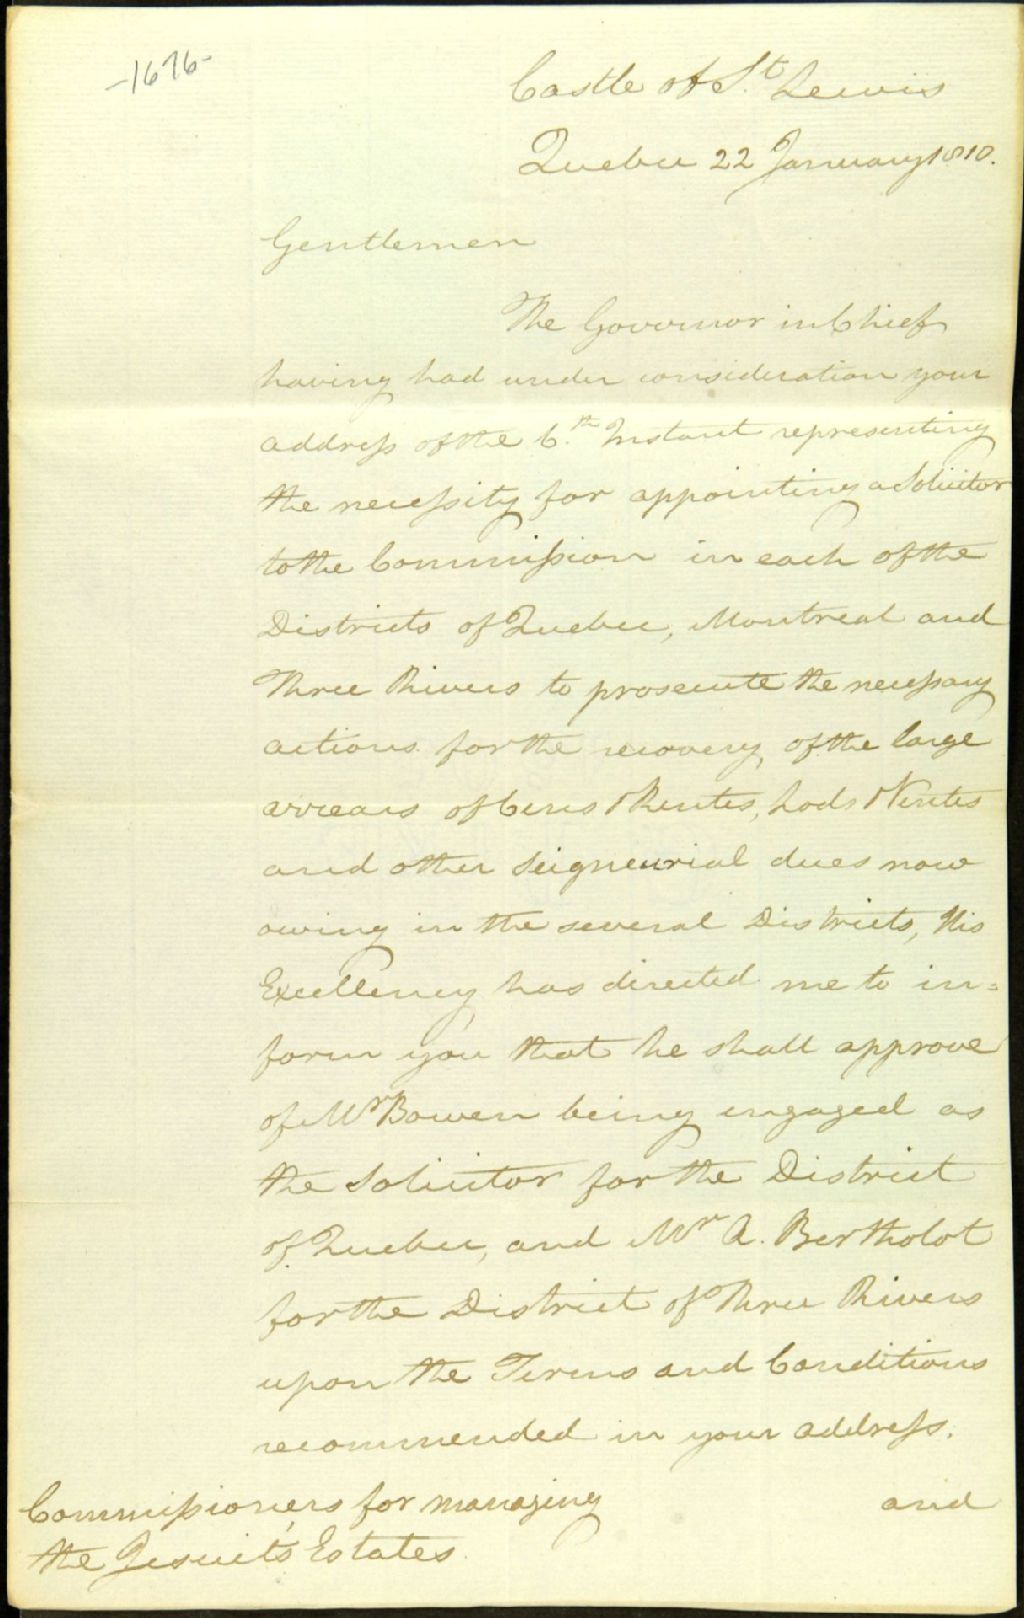 -1676-
Castle of St. Lewis
Quebec 22 January 1810.
Gentlemen
The Governor in Chief
having had under consideration your
address of the 6.th Instant representing
the necessity for appointing a Solicitor
to the Commission in each of the
Districts of Quebec, Montreal and
Three Rivers to prosecute the necessary
actions for the recovery, of the large
arrears of Cens & Rentes, Lods & Ventes
and other Seigneurial dues now
owing in the several Districts, His
Excellency has directed me to in=
form you that he shall approve
of Mr Bowen being engaged as
the Solicitor for the District
of Quebec, and Mr A. Bertholot
for the District of Three Rivers
upon the Terms and Conditions
recommended in your address.
and
Commissioners for managing
the Jesuits Estates.